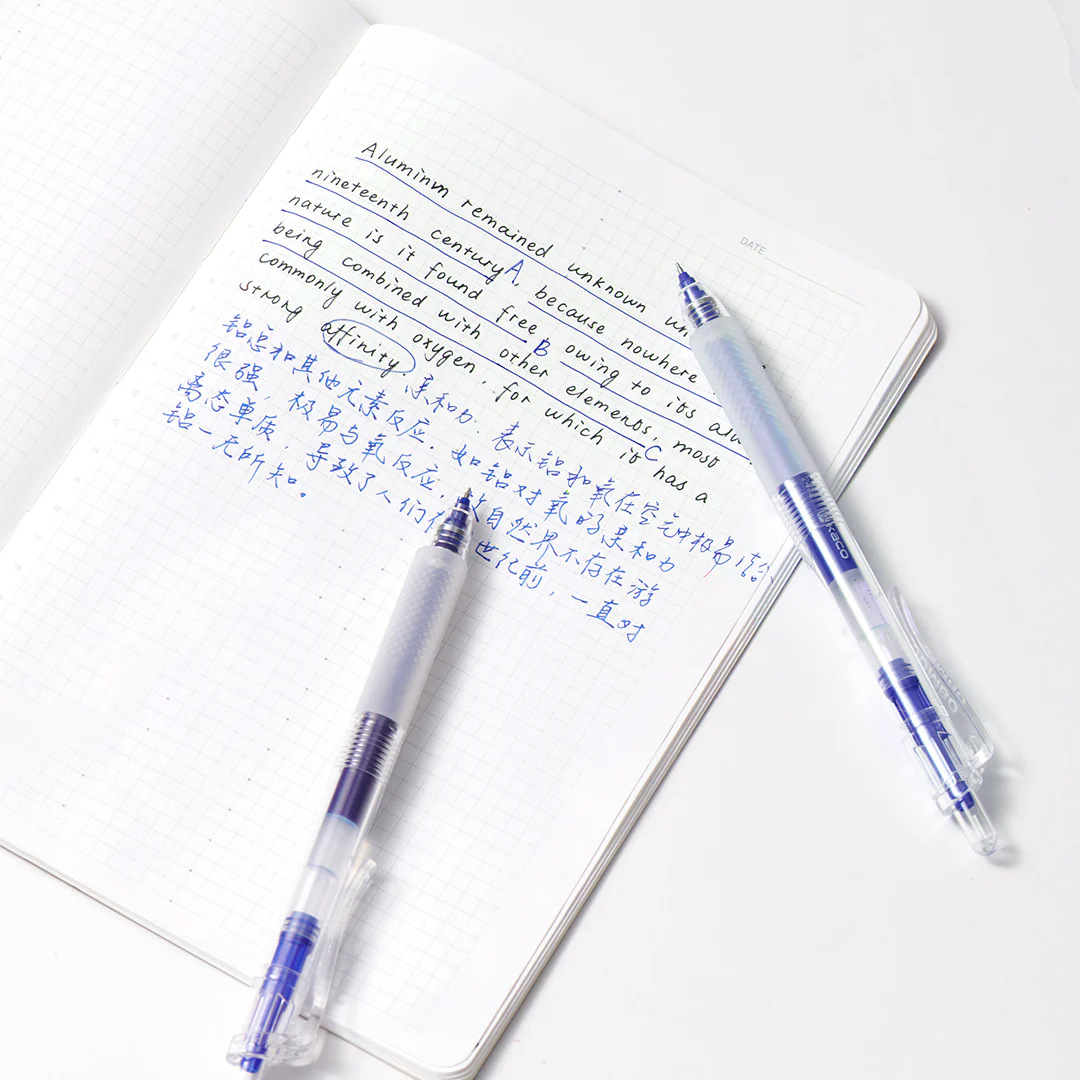 DATE
Aluminm remained unknown un
nineteenth century A, because nowhere
nature is it found free B owing to its alw
being combined with other elements, most C
commonly with oxygen, for which it has a
strong affinity.
亲和力. 表示铝和氧在空气中极易
铝总和其他元素反应. 如铝对氧的亲和力
很强, 极易与氧反应, 自然界不存在游
离态单质, 导致了人们在 世纪前, 一直对
铝一无所知。
kaco